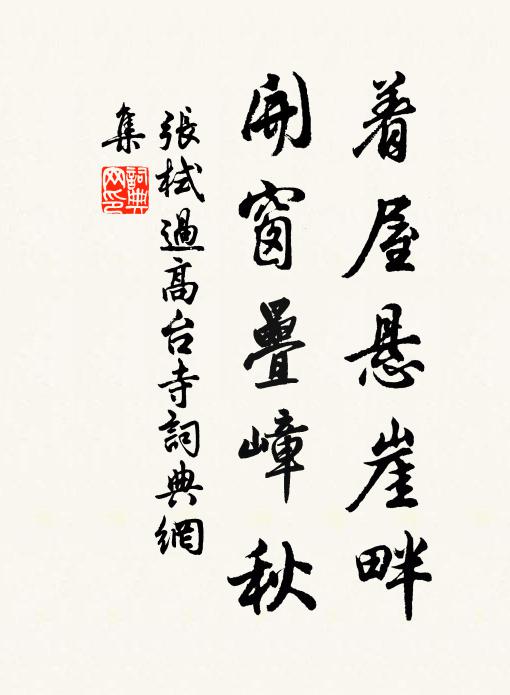 着屋悬崖畔
開窗疊嶂秋
張栻過高台寺詞典網
集
詞典网印